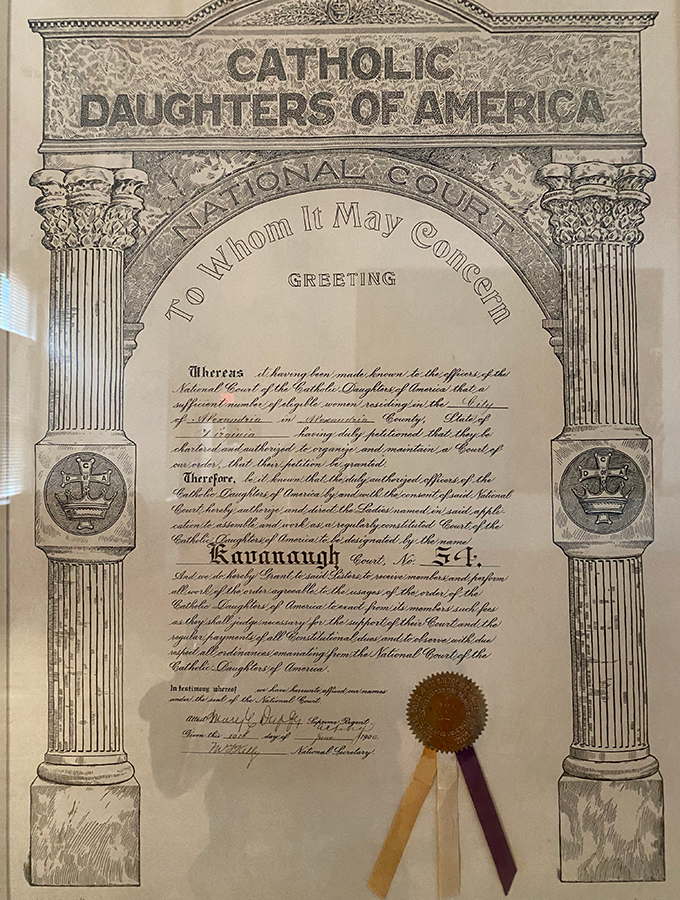 CATHOLIC
DAUGHTERS OF AMERICA
NATIONAL COURT
To Whom It May Concern
GREETING
Whereas it having been made known to the officers of the
National Court of the Catholic Daughters of America that a
sufficient number of eligible women residing in the City
of Alexandria in Alexandria County, State of
Virginia having duly petitioned that they be
chartered and authorized to organize and maintain a Court of
our order, that their petition be granted.
Therefore, be it known that the duly authorized officers of the
Catholic Daughters of America by and with the consent of said National
Court hereby authorize and direct the Ladies named in said appli-
cation to assemble and work as a regularly constituted Court of the
Catholic Daughters of America to be designated by the name
Kavanaugh Court, No. 54.
And we do hereby Grant to said Sisters to receive members and perform
all work of the order agreeable to the usages of the order of the
Catholic Daughters of America to exact from its members such fees
as they shall judge necessary for the support of their Court and the
regular payments of all Constitutional dues and to observe with due
respect all ordinances emanating from the National Court of the
Catholic Daughters of America.
In testimony whereof we have hereunto affixed our names
under the seal of the National Court
Mary C. Duffy Supreme Regent
Given this day of June
National Secretary.